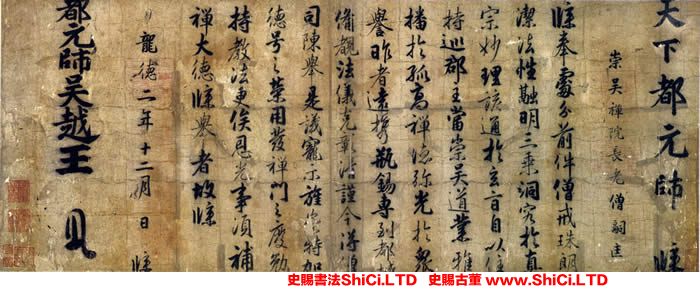 天下都元帥 牒
崇吳禪院長老僧嗣匡
牒奉處分前件僧戒珠朗
潔法性融明三乘洞究於真
宗妙理該通於玄旨自以住
持巡郡主當崇吳道業雅
播於孤高禪德弥光於眾
譽昨者遠攜瓶錫專到都
備觀法儀克彰 謹今得僧
司陳舉是議寵 旌 特加
德号之榮用發禪門之慶勉
持教法更俟恩光事須補
禪大德牒舉者故牒
龍德二年十二月 日 牒
都元帥吳越王
史賜書法ShiCi.LTD 史賜古董 www.ShiCi.LTD